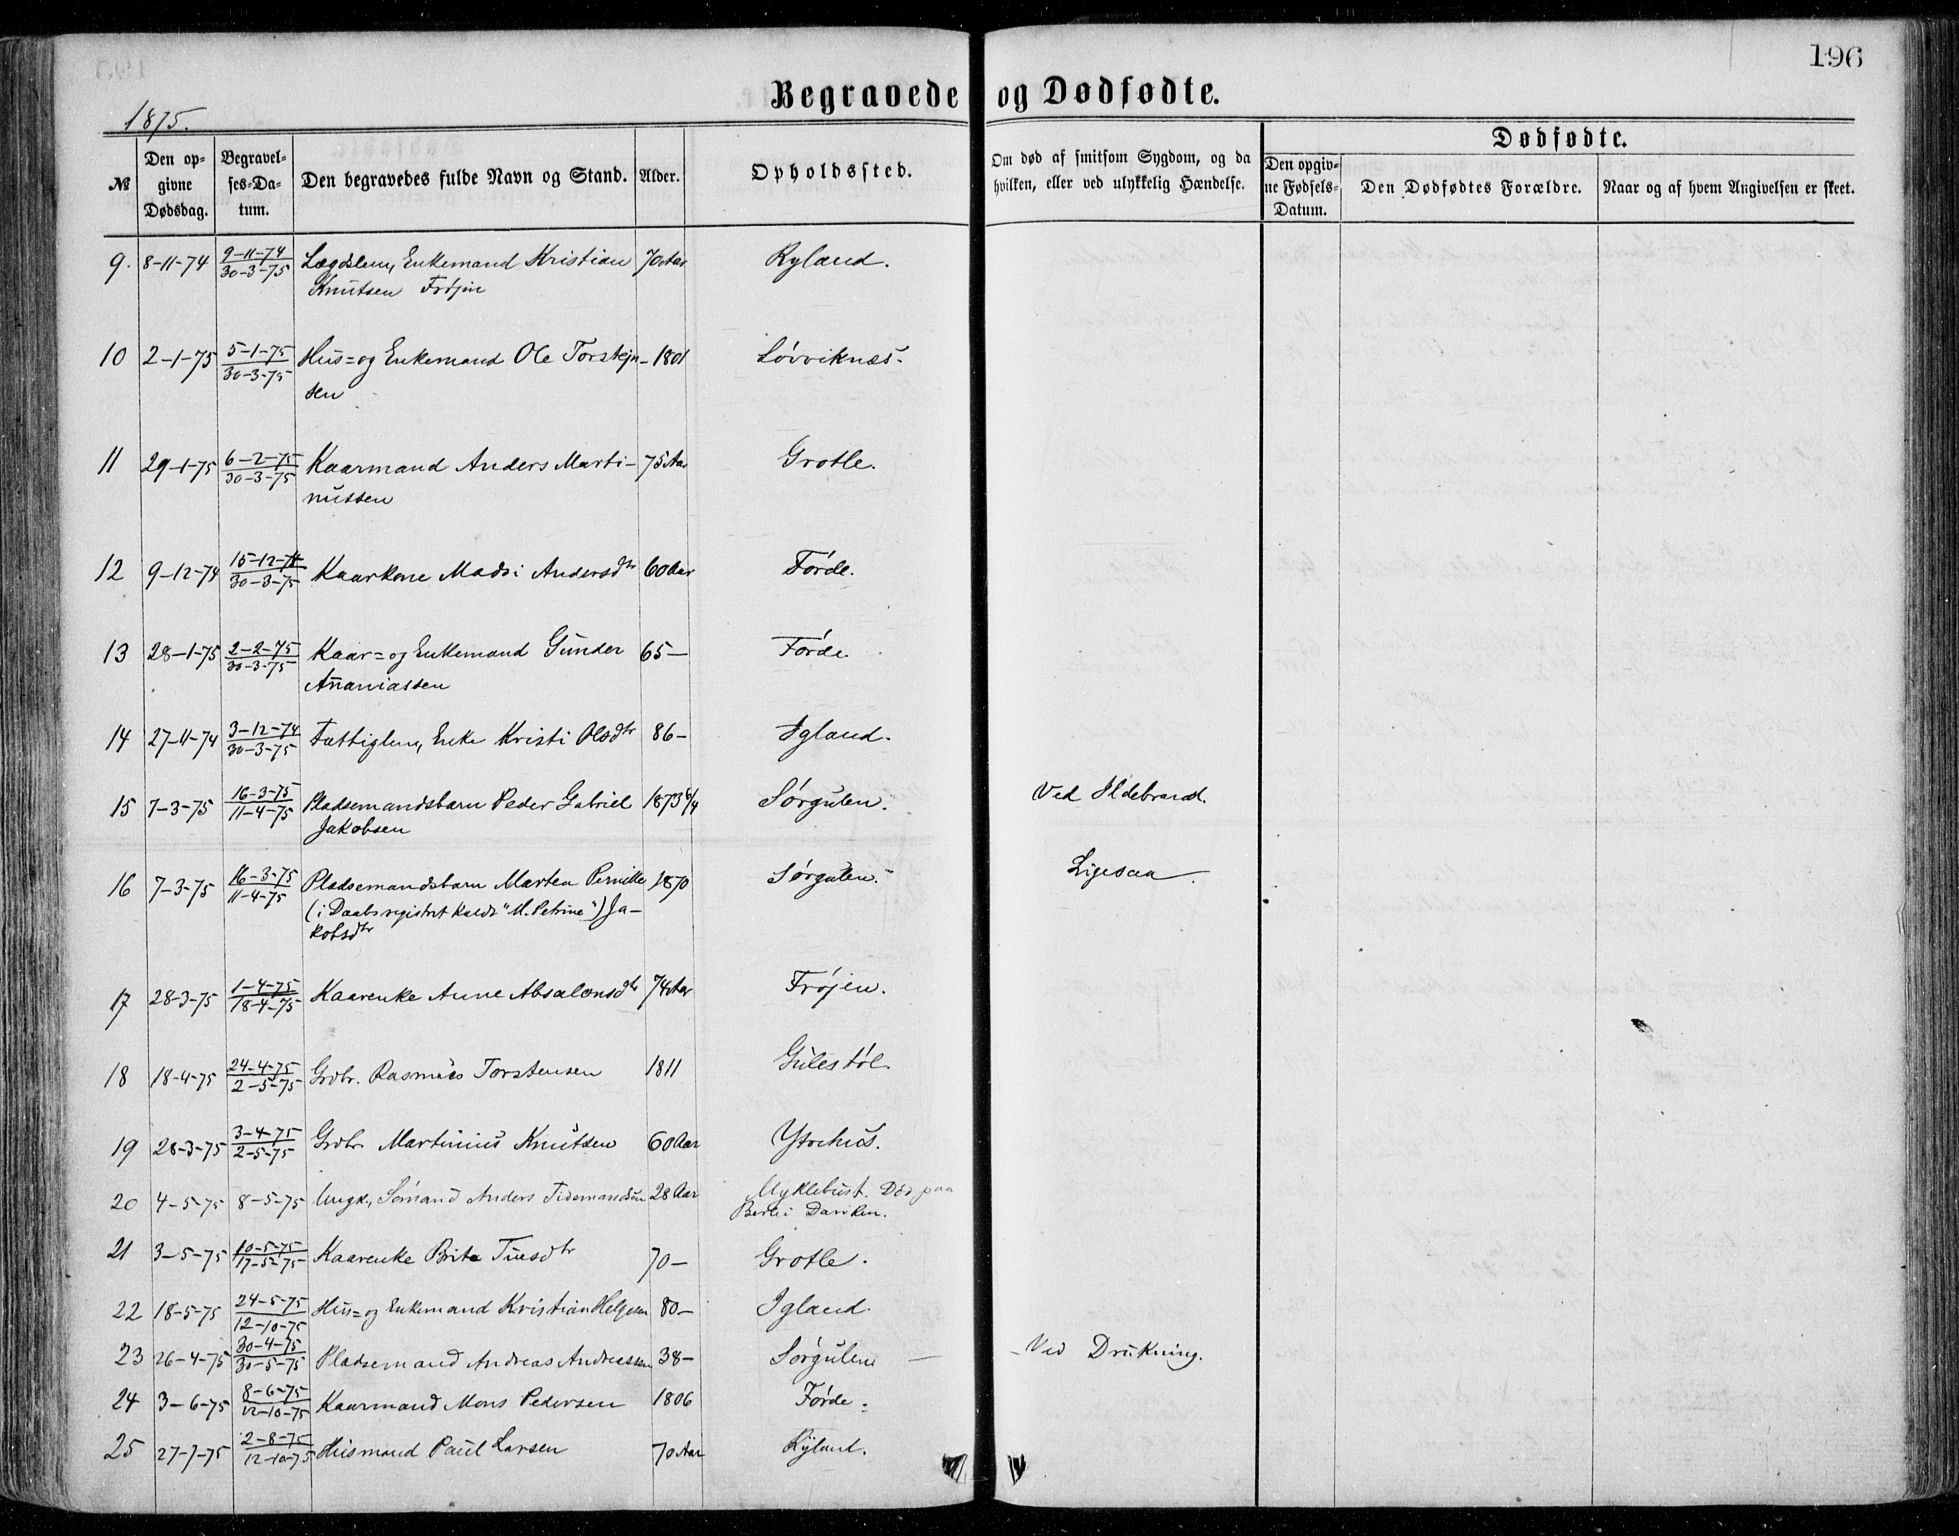 196
Begravede og Dødfødte.
1875.
№
Den op-
givne
Dødsdag.
Begravel-
ses-Da-
tum.
Den begravedes fulde Navn og Stand.
Alder.
Opholdssted.
Om død af smitsom Sygdom, og da
hvilken, eller ved ulykkelig Hændelse.
Dødfødte.
Den opgiv-
ne Fødsels-
Datum.
Den Dødfødtes Forældre.
Naar og af hvem Angivelsen er skeet.
9. 8-11-74 9-11-74 / 30-3-75 Lægdslem, Enkemand Kristian 70 Aar Ryland.
Knutsen Frøjen
10 2-1-75 5-1-75 / 30-3-75 Hus= og Enkemand Ole Torstejn- 1801 Løvviknæs.
sen
11 29-1-75 6-2-75 / 30-3-75 Kaarmand Anders Marti- 75 Aar Grotle.
nussen
12 9-12-74 15-12-74 / 30-3-75 Kaarkone Madsi Andersdtr 60 Aar Førde.
13 28-1-75 2-2-75 / 30-3-75 Kaar= og Enkemand Gunder 65- Førde.
Ananiassen
14 27-11-74 3-12-74 / 30-3-75 Fattiglem, Enke Kristi Olsdtr 86- Igland.
15 7-3-75 16-3-75 / 11-4-75 Pladsemandsbarn Peder Gabriel 1873 6/4 Sørgulen. Ved Ildebrand.
Jakobsen
16 7-3-75 16-3-75 / 11-4-75 Pladsemandsbarn Marten Pernille 1870 Sørgulen. Ligesaa.
(i Daabsregistret kaldt "M. Petrine") Ja-
kobsdtr
17 28-3-75 1-4-75 / 18-4-75 Kaarenke Anne Absalonsdtr 74 Aar Frøjen.
18 18-4-75 24-4-75 / 2-5-75 Grdbr. Rasmus Torstensen 1811 Gulestøl.
19 28-3-75 3-4-75 / 2-5-75 Grdbr. Martinus Knutsen 60 Aar Ytrehus.
20 4-5-75 8-5-75 Ungk, Sømand Anders Tidemandsen 28 Aar Myklebust. Død paa
Berlei Daviken.
21 3-5-75 10-5-75 / 17-5-75 Kaarenke Brita Tuesdtr 70- Grotle.
22 18-5-75 24-5-75 / 12-10-75 Hus= og Enkemand Kristian Helgesen 80- Igland.
23 26-4-75 30-4-75 / 30-5-75 Pladsemand Andreas Andreassen 38- Sørgulen - Ved Drukning.
24 3-6-75 8-6-75 / 12-10-75 Kaarmand Mons Pedersen 1806 Førde.
25 27-7-75 2-8-75 / 12-10-75 Husmand Paul Larsen 70 Aar Ryland.